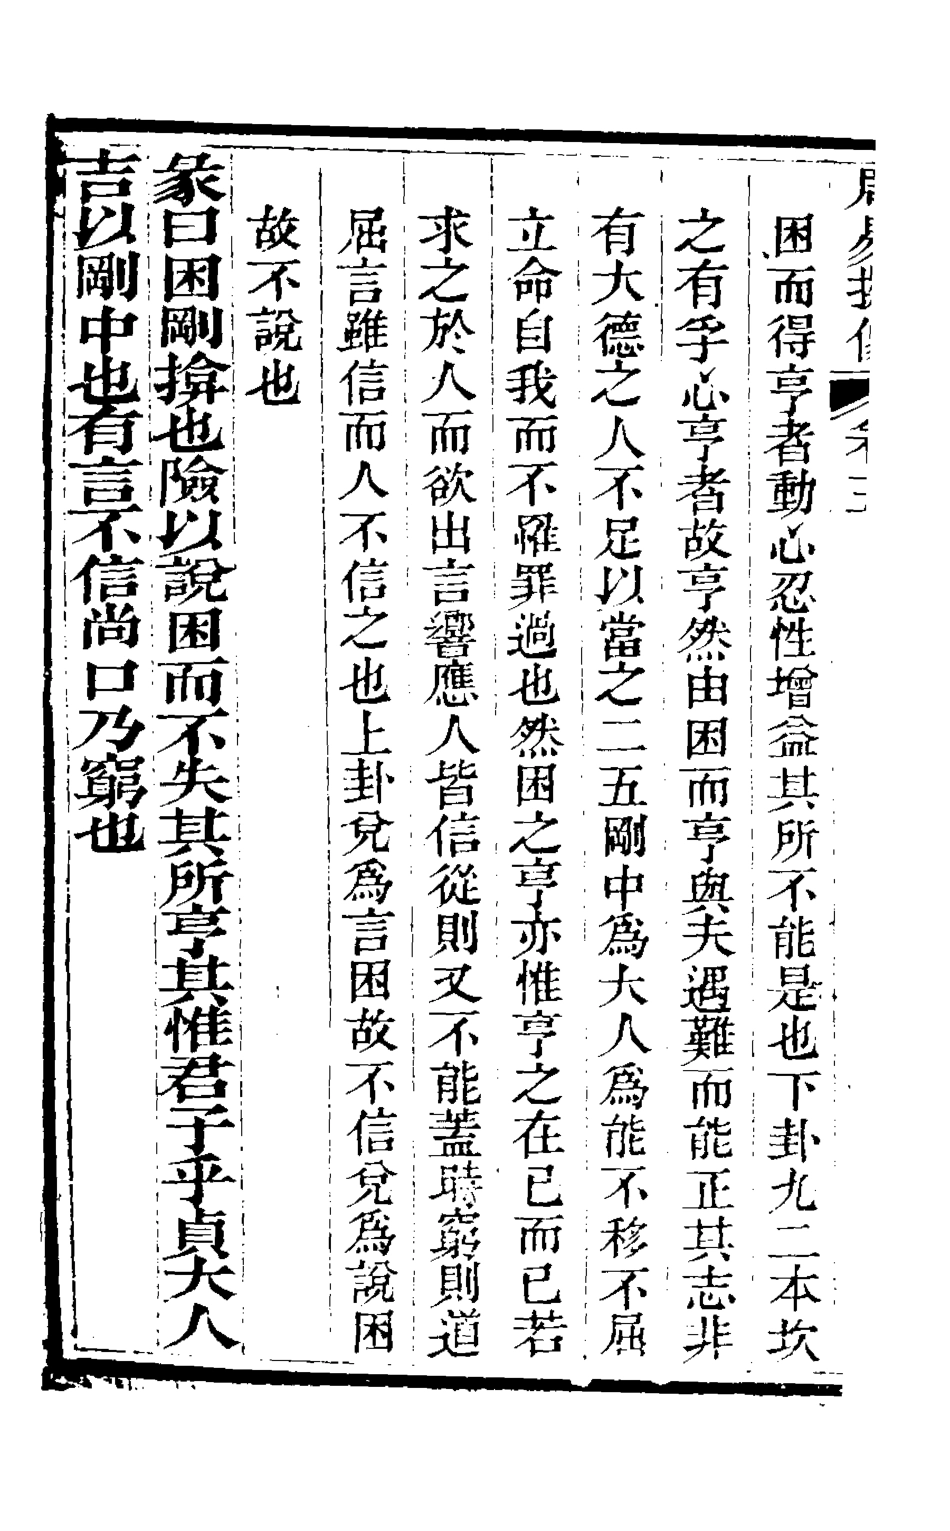 困而得亨者動心忍性增益其所不能是也下卦九二本坎
之有孚心亨者故亨然由困而亨與夫遇難而能正其志非
有大德之人不足以當之二五剛中爲大人爲能不移不屈
立命自我而不罹罪過也然困之亨亦惟亨之在己而已若
求之於人而欲出言響應人皆信從則又不能蓋時窮則道
屈言雖信而人不信之也上卦兌爲言困故不信兌爲說困
故不說也
彖曰困剛揜也險以說困而不失其所亨其惟君子乎貞大人
吉以剛中也有言不信尚口乃窮也